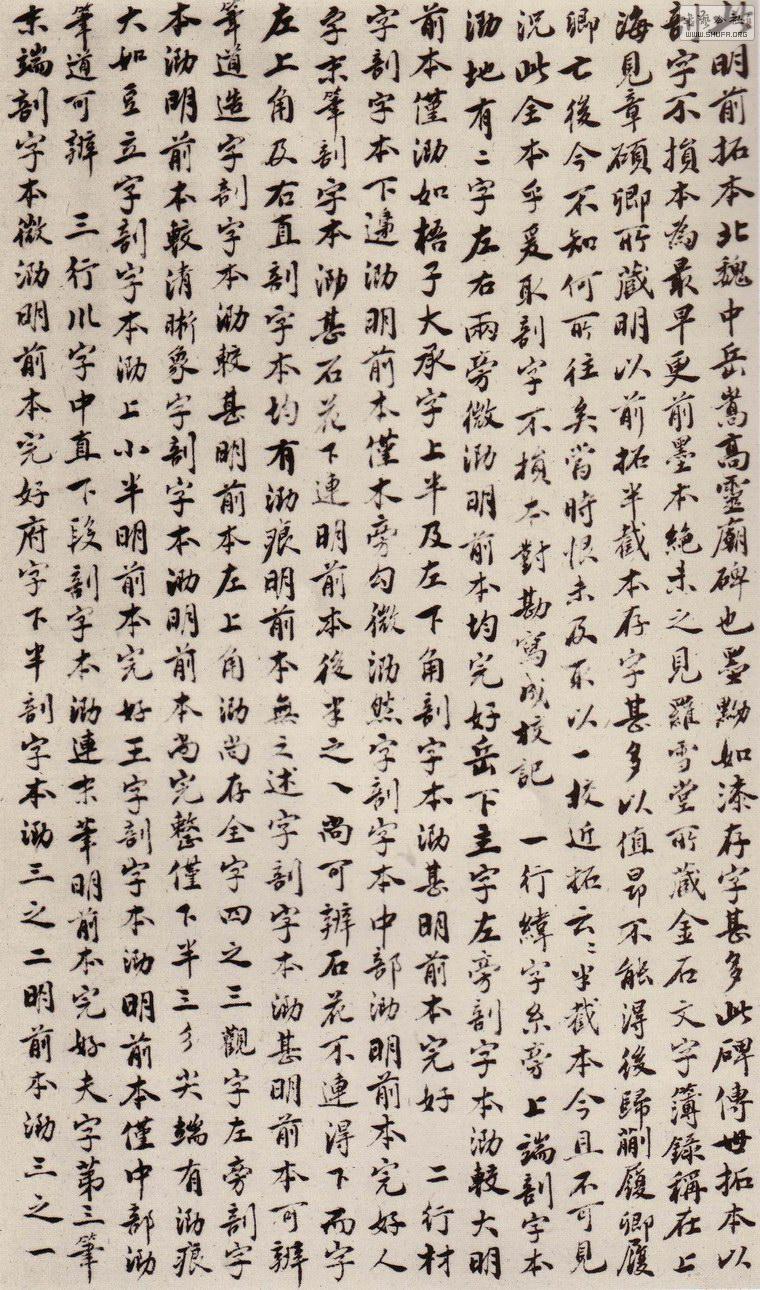 明前拓本北魏中岳嵩高靈廟碑也墨黝如漆存字甚多此碑傳世拓本以
剖字不損本為最早更前墨本絶未之見羅雪堂所藏金石文字簿錄稱在上
海見章碩卿所藏明以前拓半截本存字甚多以值昂不能得後歸蒯履卿履
卿亡後今不知何所往矣當時恨未及取以一校近拓云〻半截本今且不可見
況此全本乎爰取剖字不損本對勘寫成校記　一行緯字糸旁上端剖字本
泐地有二字左右兩旁微泐明前本均完好岳下主字左旁剖字本泐較大明
前本僅泐如梧子大承字上半及左下角剖字本泐甚明前本完好　二行材
字剖字本下邊泐明前本僅木旁勾微泐然字剖字本中部泐明前本完好人
字末筆剖字本泐甚石花下連明前本後半之乀尚可辨石花不連得下而字
左上角及右直剖字本均有泐痕明前本無之述字剖字本泐甚明前本可辨
筆道造字剖字本泐較甚明前本左上角泐尚存全字四之三觀字左旁剖字
本泐明前本較清晰象字剖字本泐明前本尚完整僅下半三彡尖端有泐痕
大如豆立字剖字本泐上小半明前本完好王字剖字本泐明前本僅中部泐
筆道可辨　三行川字中直下段剖字本泐連末筆明前本完好夫字第三筆
末端剖字本微泐明前本完好府字下半剖字本泐三之二明前本泐三之一
WWW.SHUFA.ORG